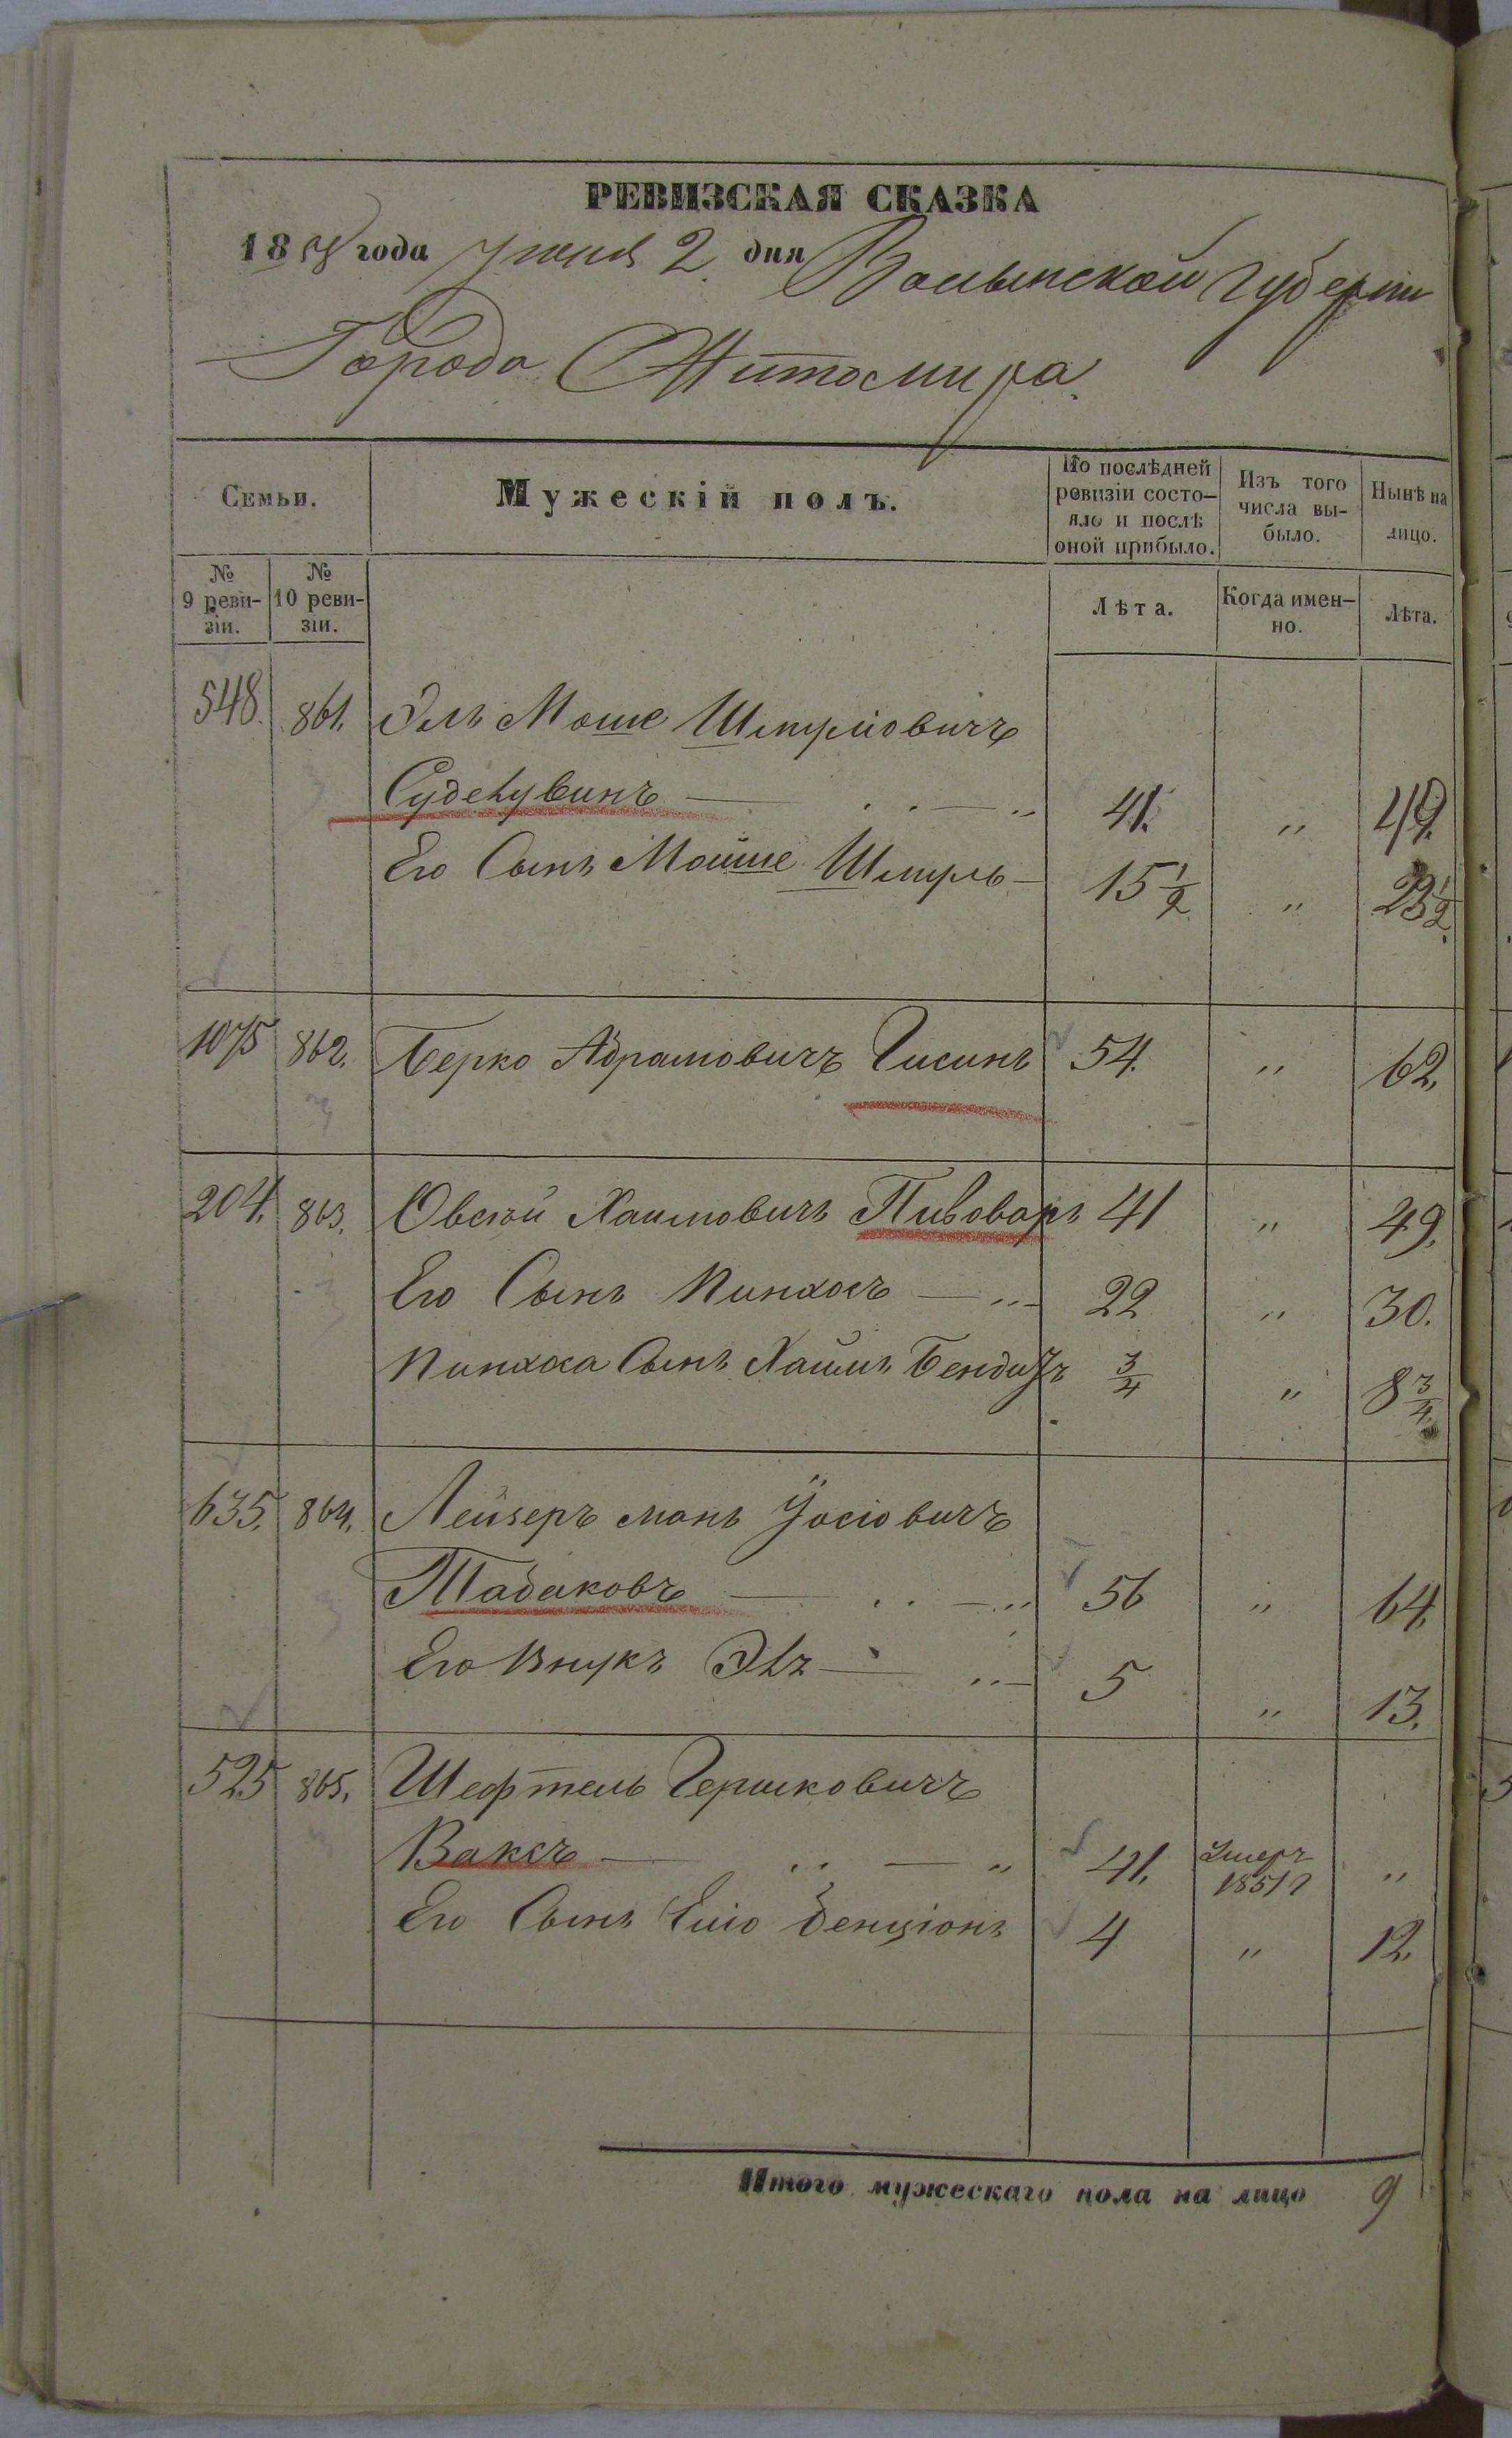 РЕВИЗСКАЯ СКАЗКА
1858 года Іюня 2 дня Волынской губерніи
Города Житомира.
Семьи.
Мужескій полъ.
По послѣдней ревизіи состо-
яло и послѣ оной прибыло.
Изъ того числа вы-
было.
Нынѣ на лицо.
№ 9 реви-
зіи.
№ 10 реви-
зіи.
Лѣта.
Когда имен-
но.
Лѣта.
548. 861. Эль Моше Шмуліовичъ
— . . — „ 41. „ 49.
Его Сынъ Мойше Шмуль — 15 1/2 „ 23 1/2.
1075 862. Берко Абрамовичъ Гисинъ 54. „ 62.
204. 863. Овсей Хаимовичъ Пивоваръ 41 „ 49.
Его Сынъ Пинхосъ — „ 22 „ 30.
Пинхоса Сынъ Хаимъ Бендитъ 3/4 „ 8 3/4.
635. 864. Лейзеръ манъ Іосіовичъ
Табаковъ — . . — „ 56 „ 64.
Его Внукъ — „ 5 „ 13.
525 865. Шефтель Гершковичъ
Ваксъ — . . — „ 41. Умеръ 1851 г „
Его Сынъ Бенціонъ 4 „ 12.
Итого мужескаго пола на лицо 9